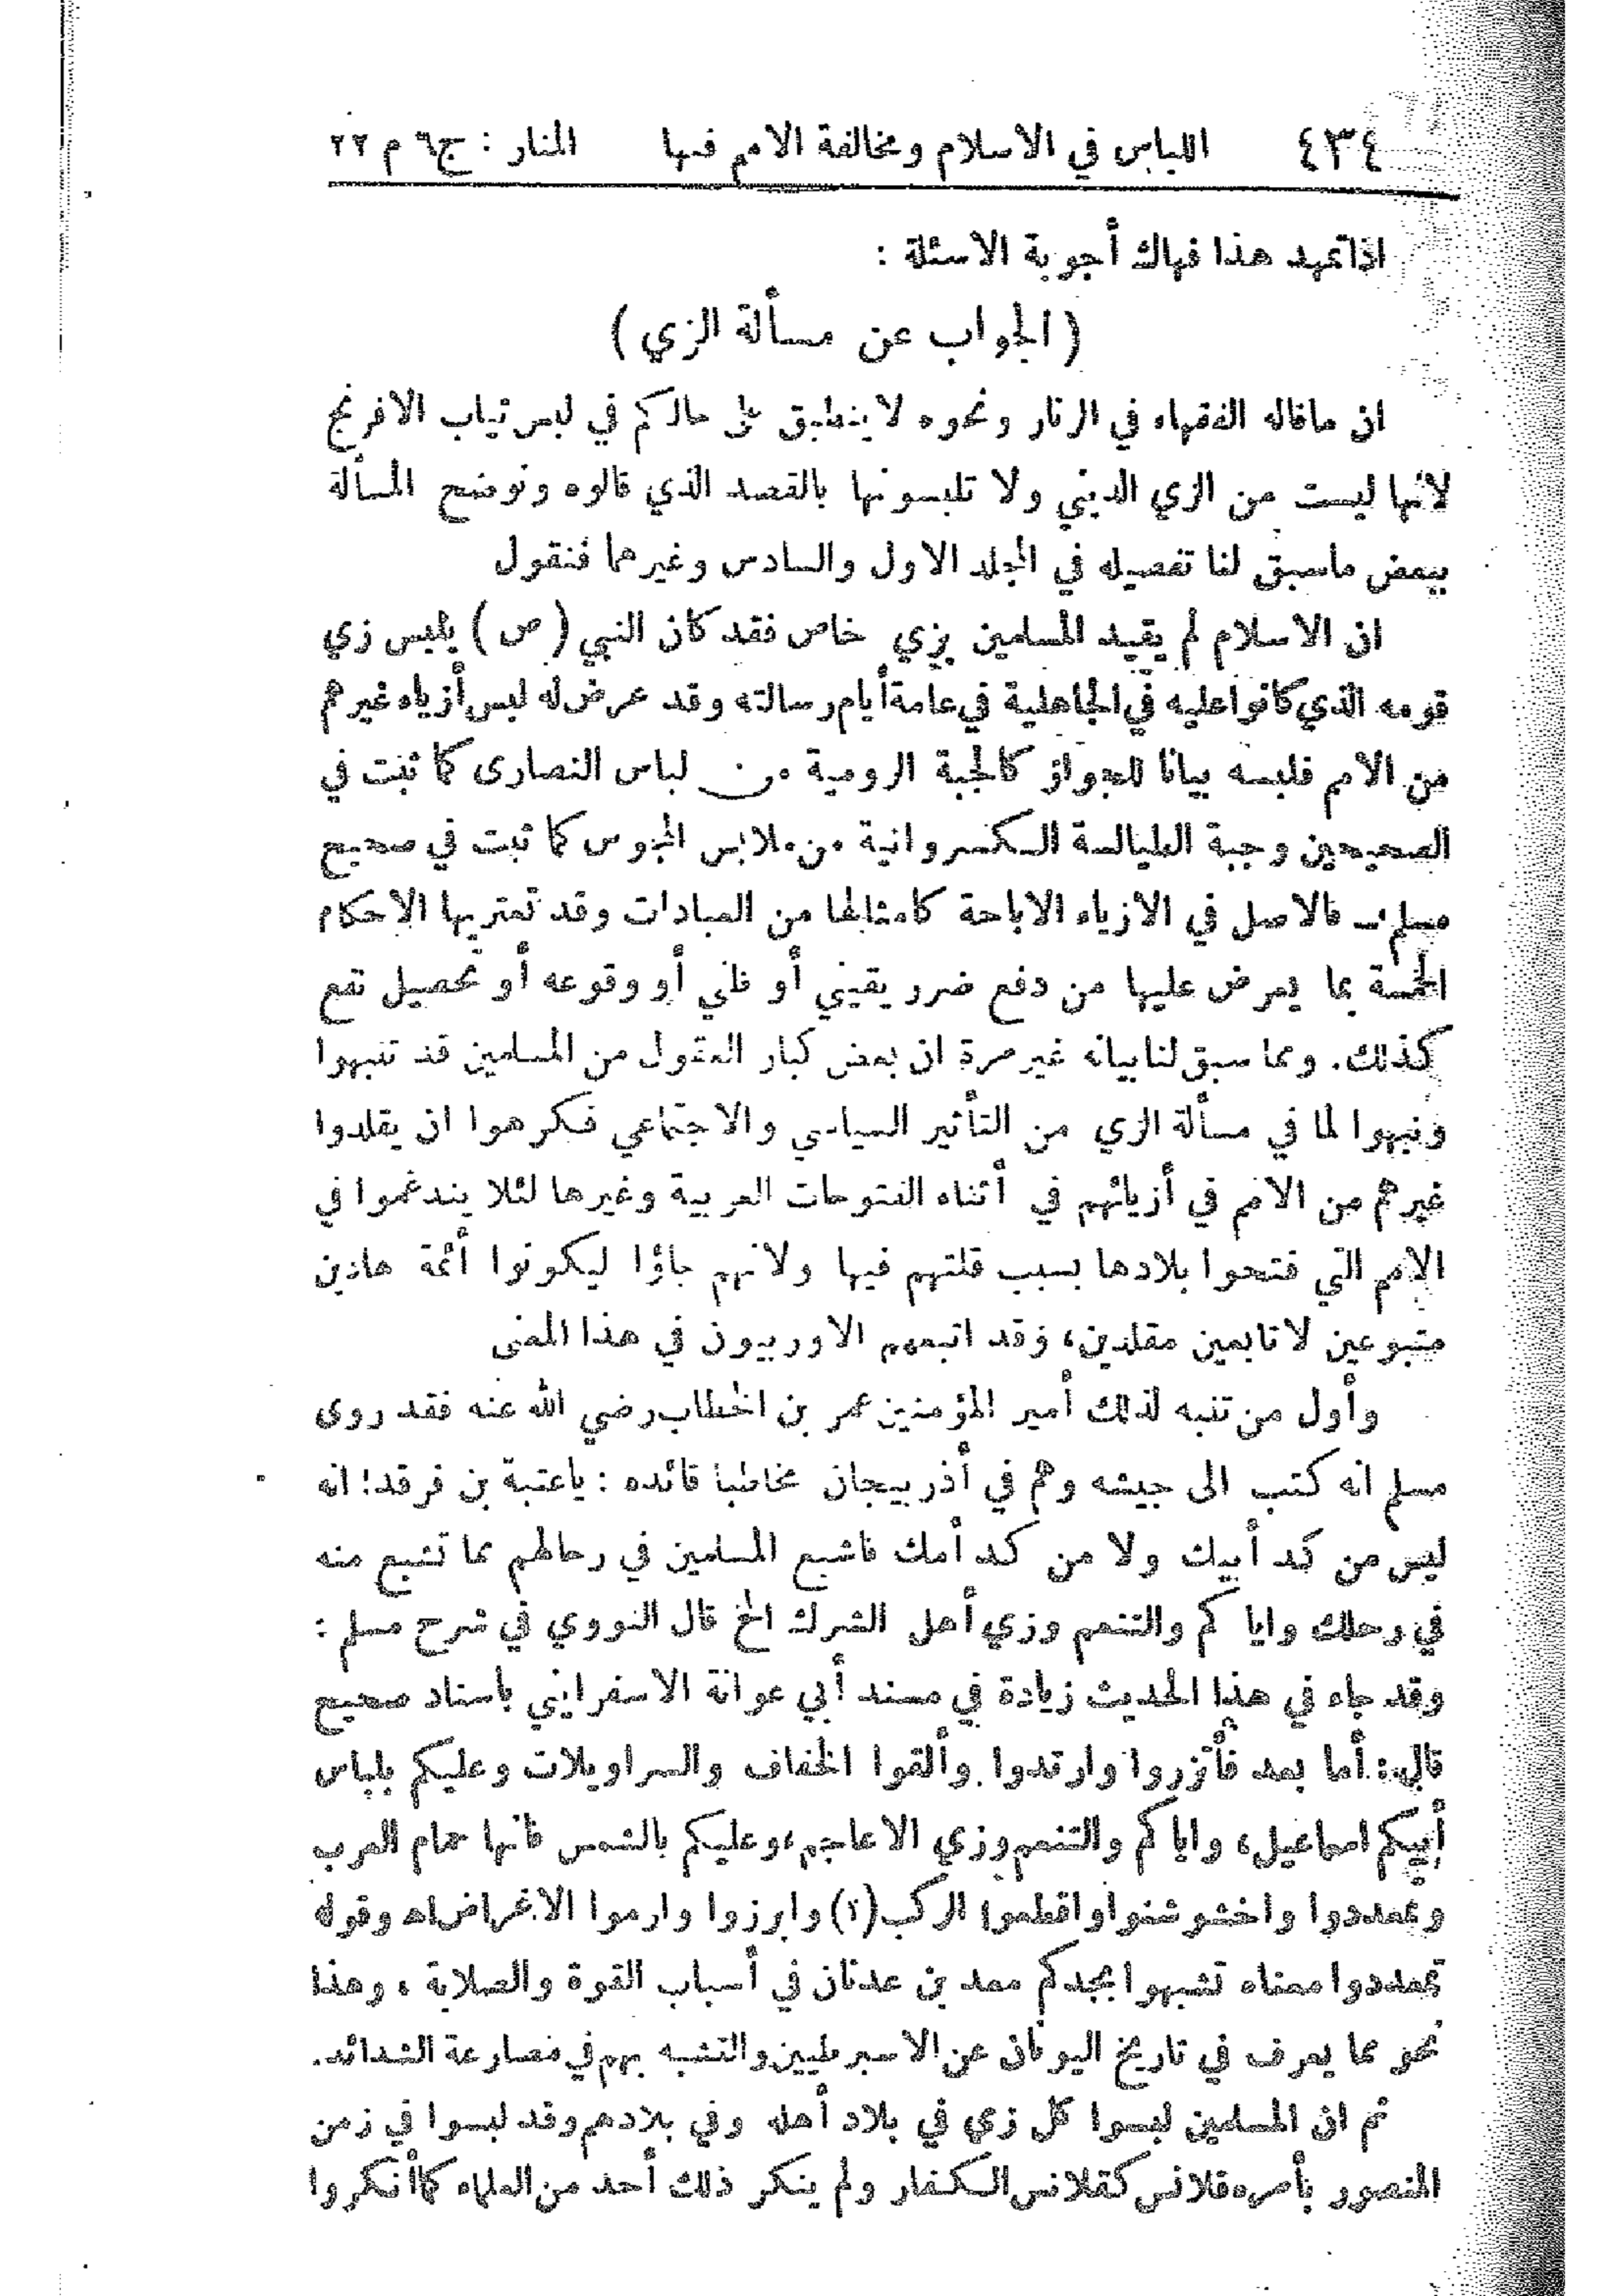 ٤٣٤ اللباس في الاسلام ومخالفة الامم فيها المنار : ج٦ م ٢٢
اذا تمهد هذا فهاك أجوبة الاسئلة :
( الجواب عن مسألة الزي )
ان ماقاله الفقهاء في الزنار ونحوه لا ينطبق على حالكم في لبس ثياب الافرنج
لانها ليست من الزي الديني ولا تلبسونها بالقصد الذي قالوه ونوضح المسألة
ببعض ماسبق لنا تفصيله في المجلد الاول والسادس وغيرهما فنقول
ان الاسلام لم يقيد المسلمين بزي خاص فقد كان النبي ( ص ) يلبس زي
قومه الذي كانوا عليه في الجاهلية في عامة أيام رسالته وقد عرض له لبس أزياء غيرهم
من الامم فلبسه بيانا للجواز كالجبة الرومية من لباس النصارى كما ثبت في
الصحيحين وجبة الطيالسة الكسروانية من ملابس المجوس كما ثبت في صحيح
مسلم ـ فالاصل في الازياء الاباحة كامثالها من العبادات وقد تعتريها الاحكام
الخمسة بما يعرض عليها من دفع ضرر يقيني أو ظني أو وقوعه أو تحصيل نفع
كذلك. ومما سبق لنا بيانه غير مرة ان بعض كبار العقول من المسلمين قد تنبهوا
ونبهوا لما في مسألة الزي من التأثير السياسي والاجتماعي فكرهوا ان يقلدوا
غيرهم من الامم في أزيائهم في أثناء الفتوحات العربية وغيرها لئلا يندغموا في
الامم التي فتحوا بلادها بسبب قلتهم فيها ولانهم جاؤا ليكونوا أئمة هادين
متبوعين لا تابعين مقلدين، وقد اتبعهم الاوربيون في هذا المعنى
وأول من تنبه لذلك أمير المؤمنين عمر بن الخطاب رضي الله عنه فقد روى
مسلم انه كتب الى جيشه وهم في أذربيجان مخاطبا قائده : ياعتبة بن فرقد! انه
ليس من كد أبيك ولا من كد أمك فاشبع المسلمين في رحالهم مما تشبع منه
في رحلك واياكم والتنعم وزي أهل الشرك الخ قال النووي في شرح مسلم :
وقد جاء في هذا الحديث زيادة في مسند أبي عوانة الاسفرايني باسناد صحيح
قال : أما بعد فأتزروا وارتدوا وألقوا الخفاف والسراويلات وعليكم بلباس
أبيكم اسماعيل، واياكم والتنعم وزي الاعاجم، وعليكم بالشمس فانها حمام العرب
وتمعددوا واخشوشنوا واقطعوا الركب (؟) وابرزوا وارموا الاغراض اه وقوله
تمعددوا معناه تشبهوا بجدكم معد بن عدنان في أسباب القوة والصلابة ، وهذا
نحو مما يعرف في تاريخ اليونان عن الاسبرطيين والتشبه بهم في مصارعة الشدائد.
ثم ان المسلمين لبسوا كل زي في بلاد أهله وفي بلادهم وقد لبسوا في زمن
المنصور بأمره قلانس كقلانس الكفار ولم ينكر ذلك أحد من العلماء كما أنكروا